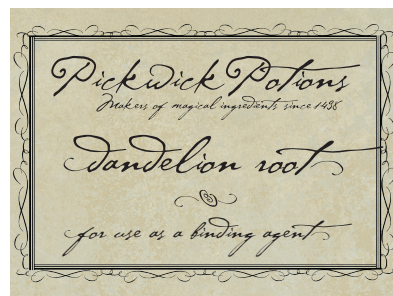 Pickwick Potions
Makers of magical ingredients since 1438
dandelion root
for use as a binding agent